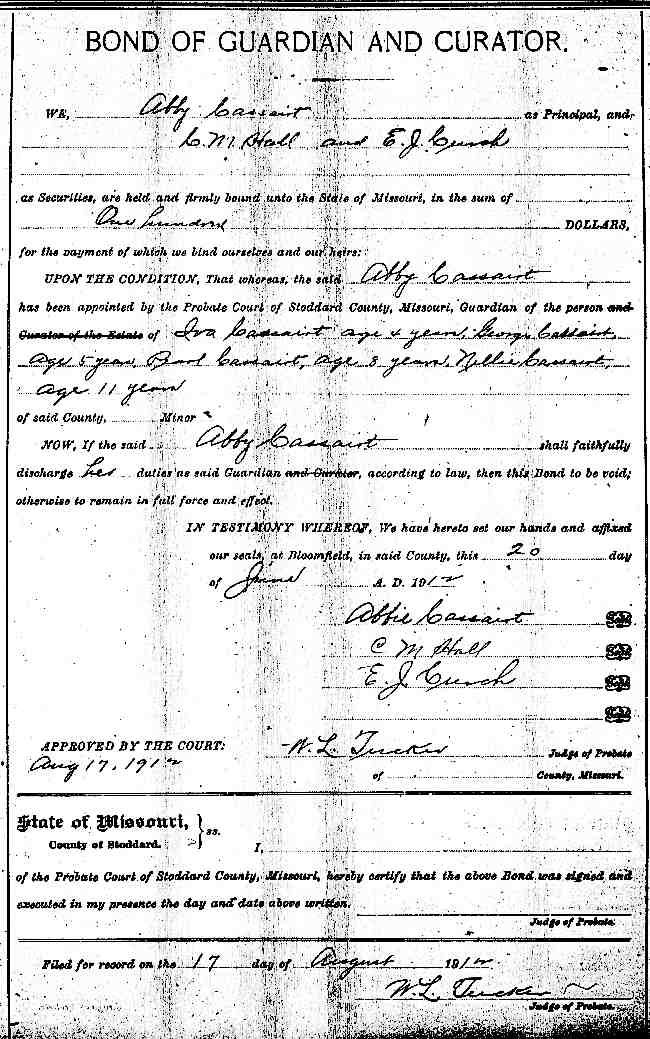 BOND OF GUARDIAN AND CURATOR.
WE, Abby Cassairt as Principal, and
C. M. Hall and E. J. Cursh
as Securities, are held and firmly bound unto the State of Missouri, in the sum of
One hundred DOLLARS,
for the payment of which we bind ourselves and our heirs:
UPON THE CONDITION, That whereas, the said Abby Cassairt
has been appointed by the Probate Court of Stoddard County, Missouri, Guardian of the person and
Curator of the Estate of Iva Cassairt age 4 year, George Cassairt,
age 5 year, Cassairt, age 8 year, Nellie Cassairt,
age 11 year
of said County, Minor
NOW, If the said Abby Cassairt shall faithfully
discharge her duties as said Guardian and Curator, according to law, then this Bond to be void;
otherwise to remain in full force and effect.
IN TESTIMONY WHEREOF, We have hereto set our hands and affixed
our seals, at Bloomfield, in said County, this 20 day
of June A. D. 1912
Abbie Cassairt
C M Hall
E. J. Cursh
APPROVED BY THE COURT: W. L. Tucker Judge of Probate
Aug 17, 1912 of County, Missouri.
State of Missouri, } ss.
County of Stoddard. I,
of the Probate Court of Stoddard County, Missouri, hereby certify that the above Bond was signed and
executed in my presence the day and date above written.
Judge of Probate.
Filed for record on the 17 day of August 1912
W. L. Tucker
Judge of Probate.